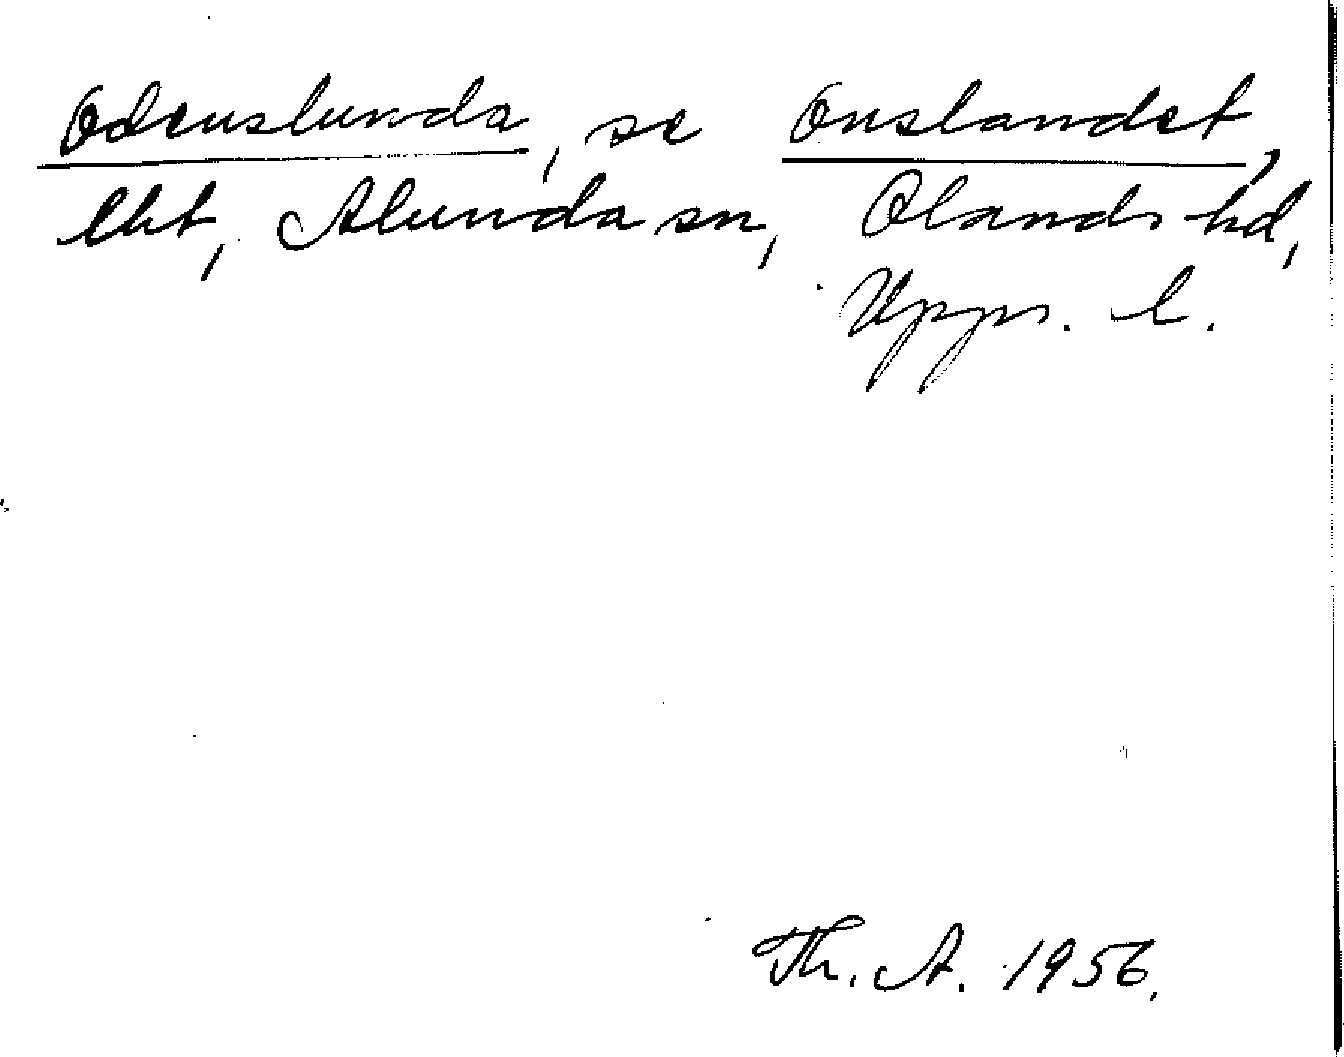 Odenslunda, se Onslandet,
lht, Alunda sn, Olands hd,
Upps. l.
Th. A. 1956.